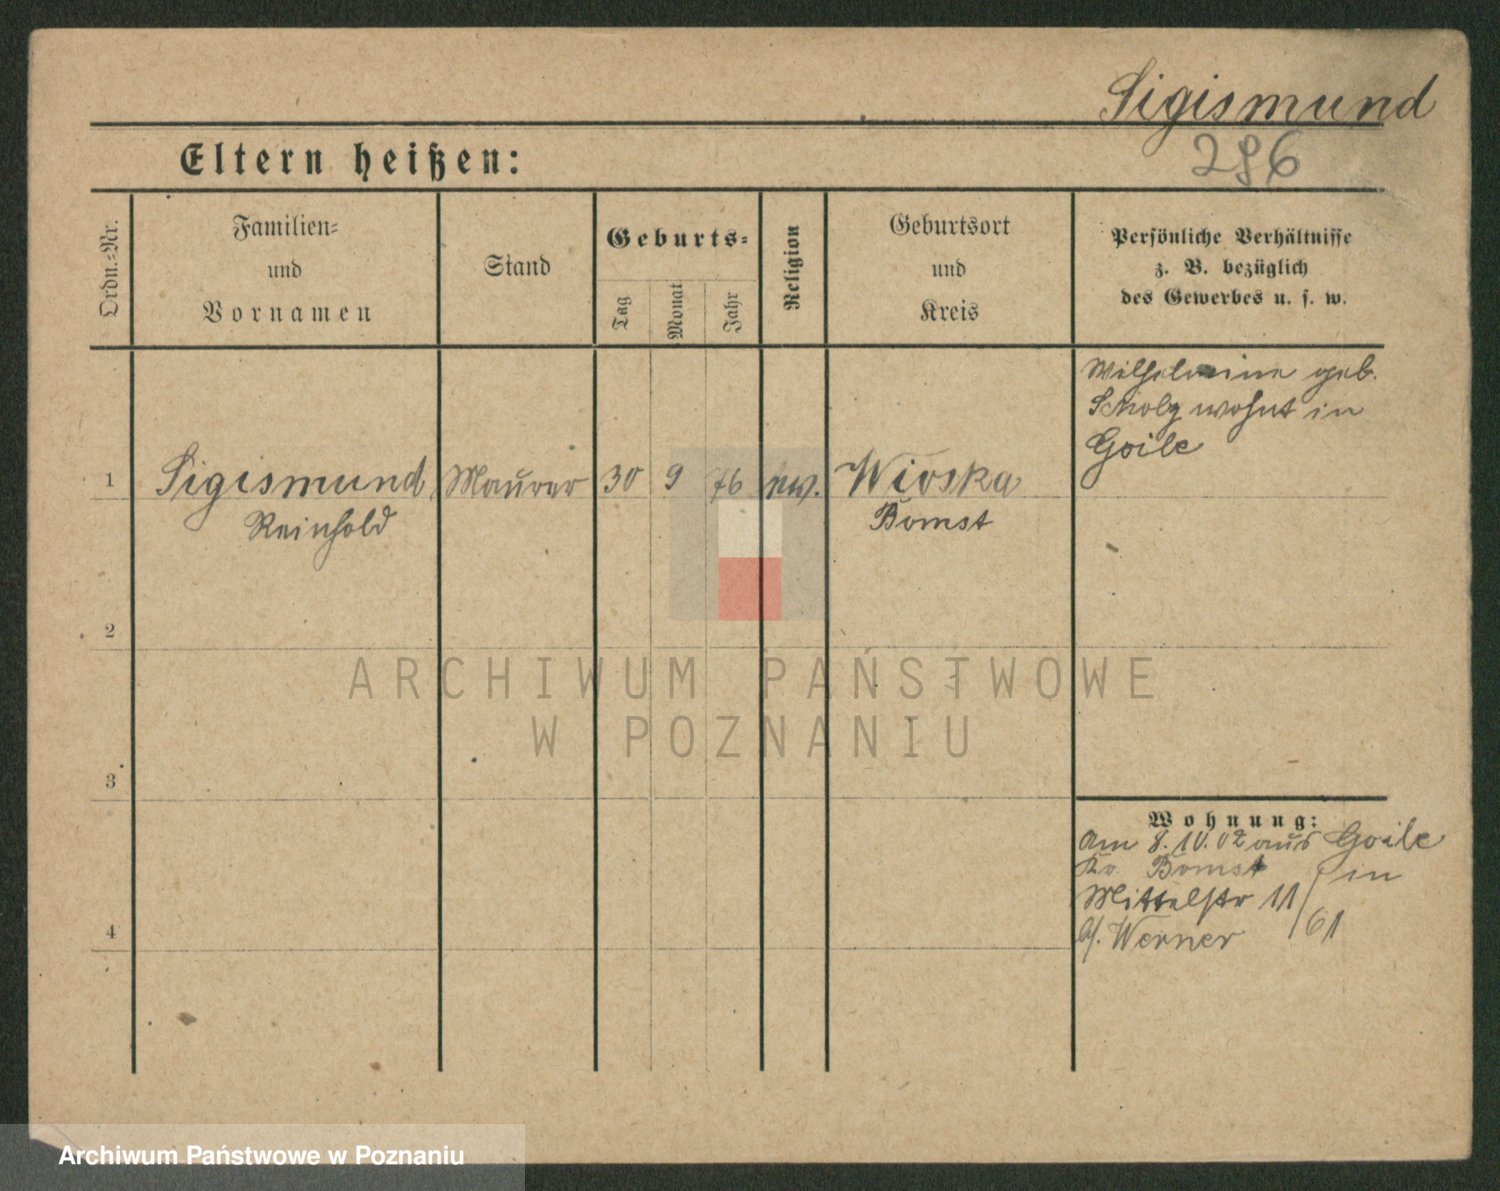 Sigismund
296
Eltern heißen:
Ordn.-Nr.
Familien-
und
Vornamen
Stand
Geburts-
Tag
Monat
Jahr
Religion
Geburtsort
und
Kreis
Persönliche Verhältnisse
z. B. bezüglich
des Gewerbes u. s. w.
Wilhelmine geb.
Scholz wohnt in
Goile
1
Sigismund
Reinhold
Maurer
30
9
76
ew.
Wioska
Bomst
2
3
4
Wohnung:
Am 8.10.02 aus Goile
Kr. Bomst in
Mittelstr 11
b/. Werner
/61
ARCHIWUM PAŃSTWOWE
W POZNANIU
Archiwum Państwowe w Poznaniu